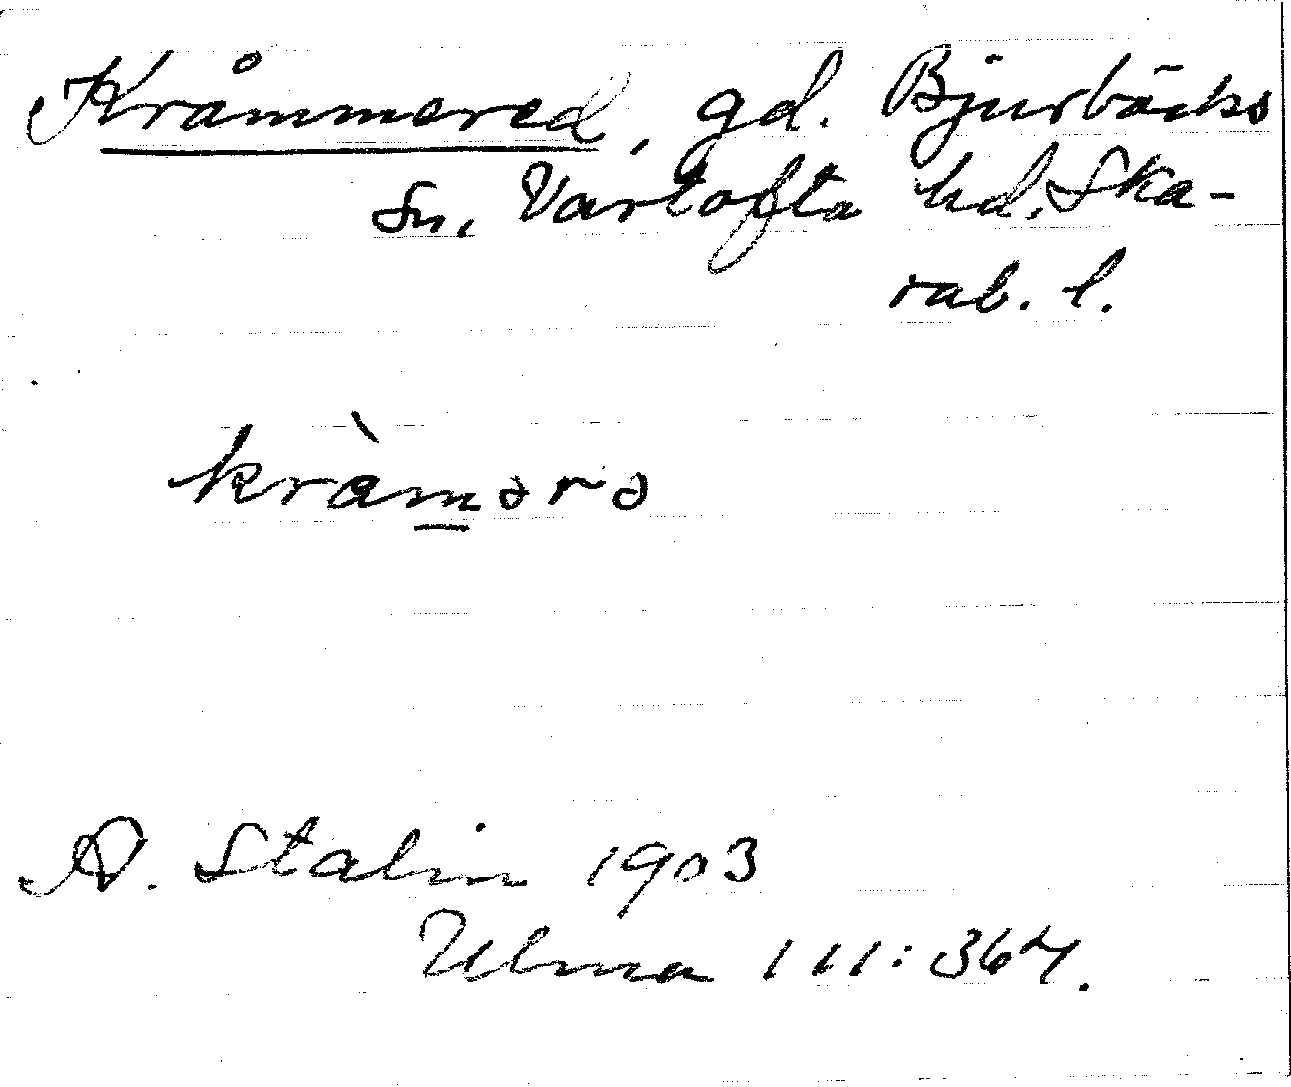 Kråmmered, gd. Bjurbäcks
sn. Vartofta hd. Ska-
rab. l.
kràmərə
A. Stalin 1903
Ulma 111:364.